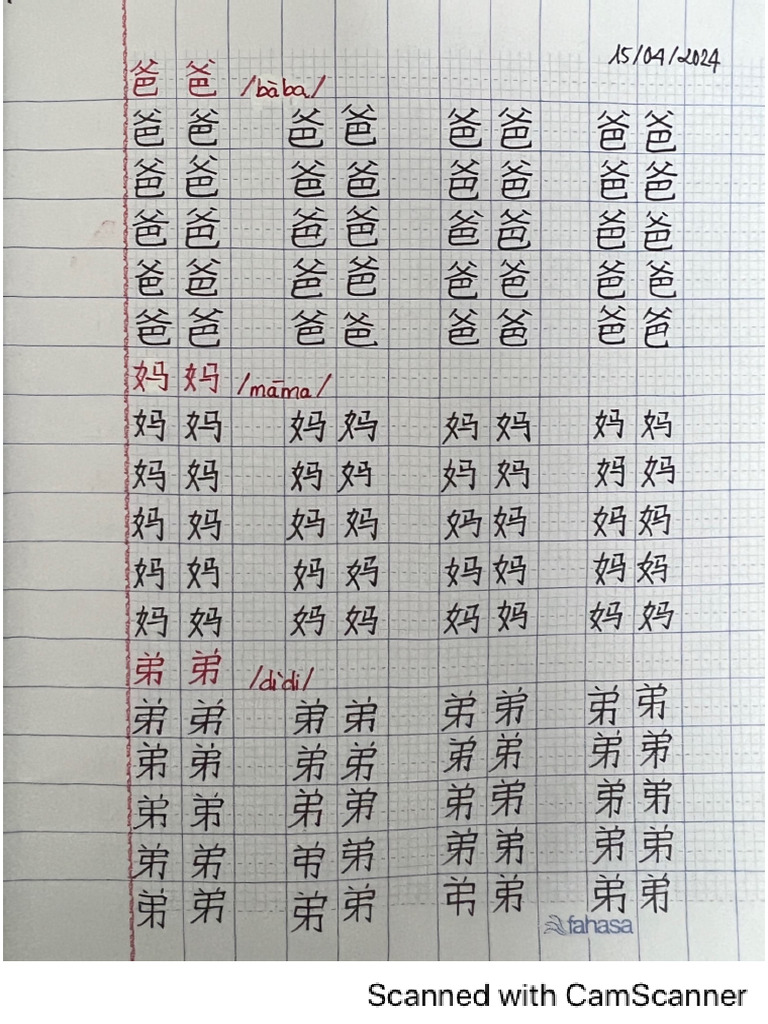 15/04/2024
爸 爸 /bàba/
爸 爸 爸 爸 爸 爸 爸 爸
爸 爸 爸 爸 爸 爸 爸 爸
爸 爸 爸 爸 爸 爸 爸 爸
爸 爸 爸 爸 爸 爸 爸 爸
爸 爸 爸 爸 爸 爸 爸 爸
妈 妈 /māma/
妈 妈 妈 妈 妈 妈 妈 妈
妈 妈 妈 妈 妈 妈 妈 妈
妈 妈 妈 妈 妈 妈 妈 妈
妈 妈 妈 妈 妈 妈 妈 妈
妈 妈 妈 妈 妈 妈 妈 妈
弟 弟 /dìdi/
弟 弟 弟 弟 弟 弟 弟 弟
弟 弟 弟 弟 弟 弟 弟 弟
弟 弟 弟 弟 弟 弟 弟 弟
弟 弟 弟 弟 弟 弟 弟 弟
弟 弟 弟 弟 弟 弟 弟 弟
fahasa
Scanned with CamScanner